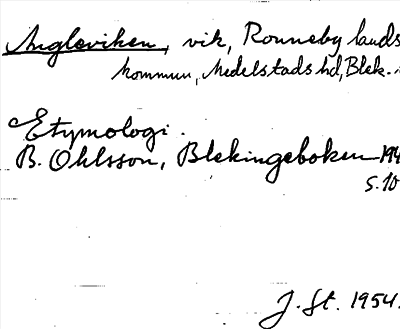 Angleviken, vik, Ronneby lands
kommun, Medelstads hd, Blek.
Etymologi.
B. Ohlsson, Blekingeboken 194
s. 10
J. St. 1954.